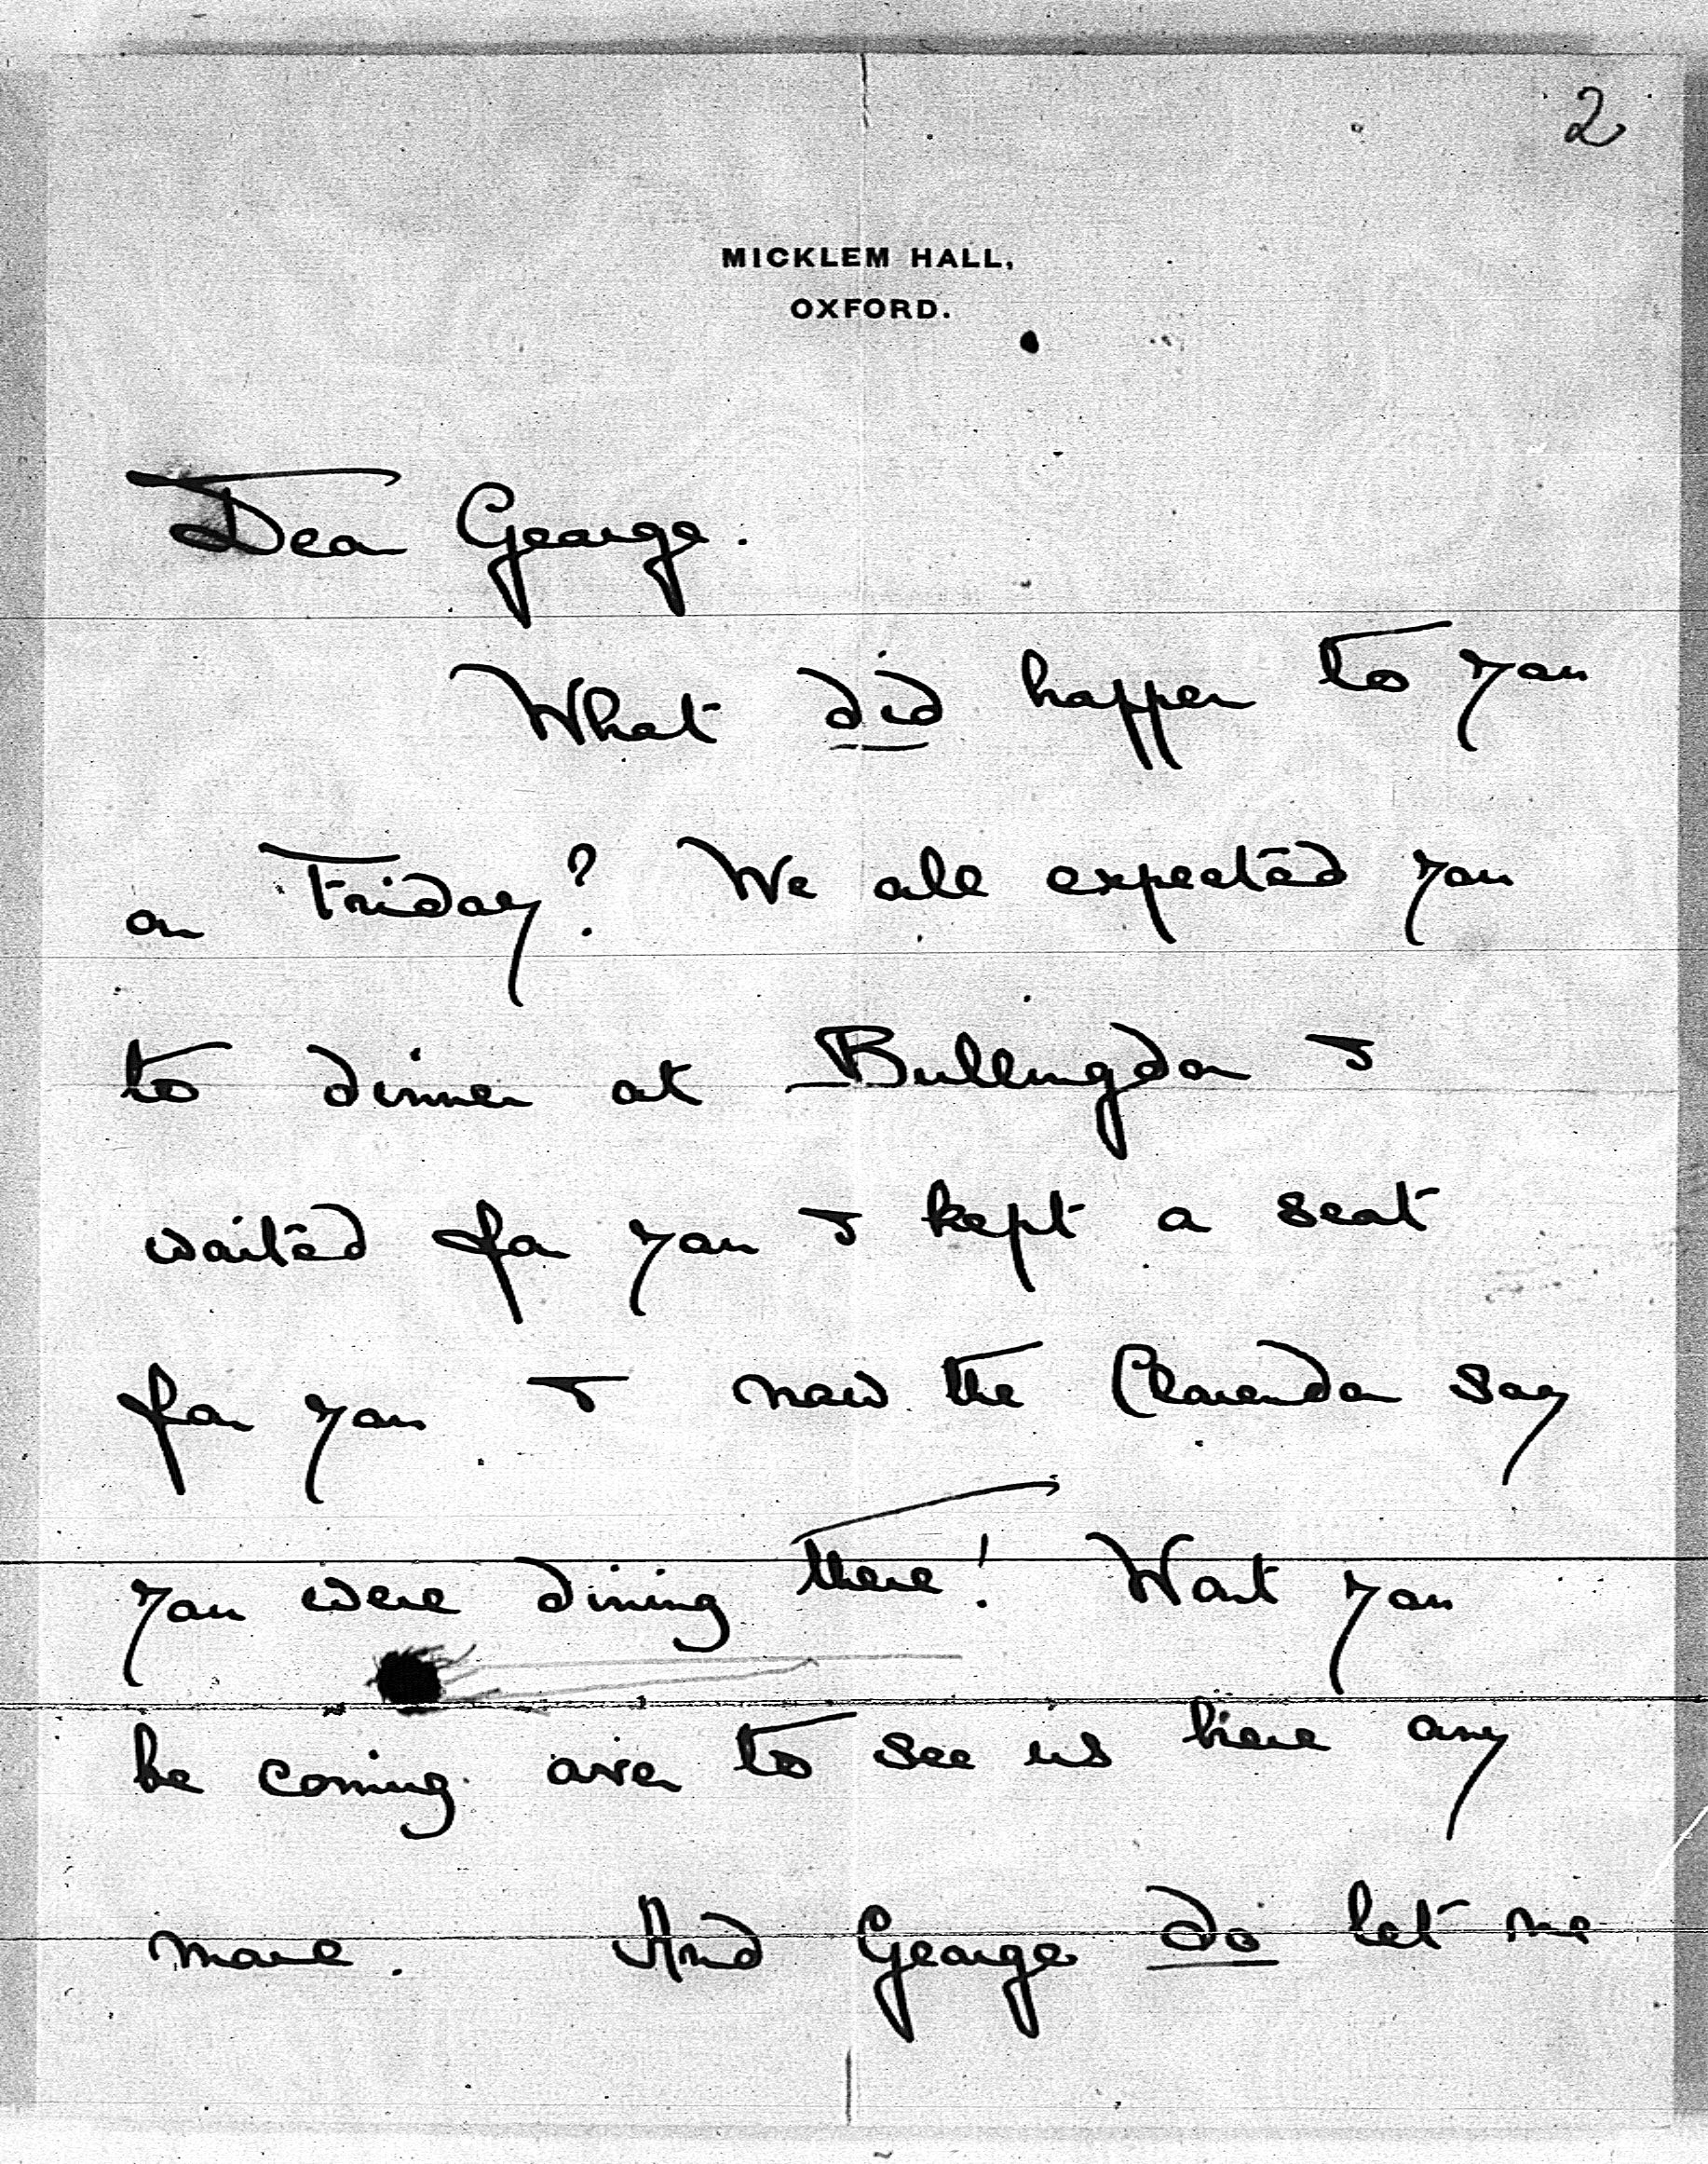 2
MICKLEM HALL,
OXFORD.
Dear George.
What did happen to you
on Friday? We all expected you
to dinner at Bullingdon &
waited for you & kept a seat
for you & now the Clarendon say
you were dining there! Wont you
be coming over to see us here any
more. And George do let me